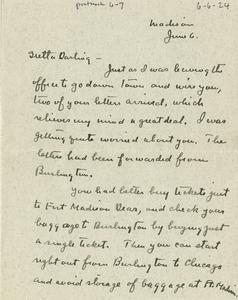 postmark 6-7
6-6-24
Madison
June 6.
Gretta Darling -
Just as I was leaving the
office to go down town and wire you,
two of your letters arrived, which
relieves my mind a great deal. I was
getting quite worried about you. The
letters had been forwarded from
Burlington.
You had better buy tickets just
to Fort Madison Dear, and check your
baggage to Burlington by buying just
a single ticket. Then you can start
right out from Burlington to Chicago
and avoid storage of baggage at Ft.